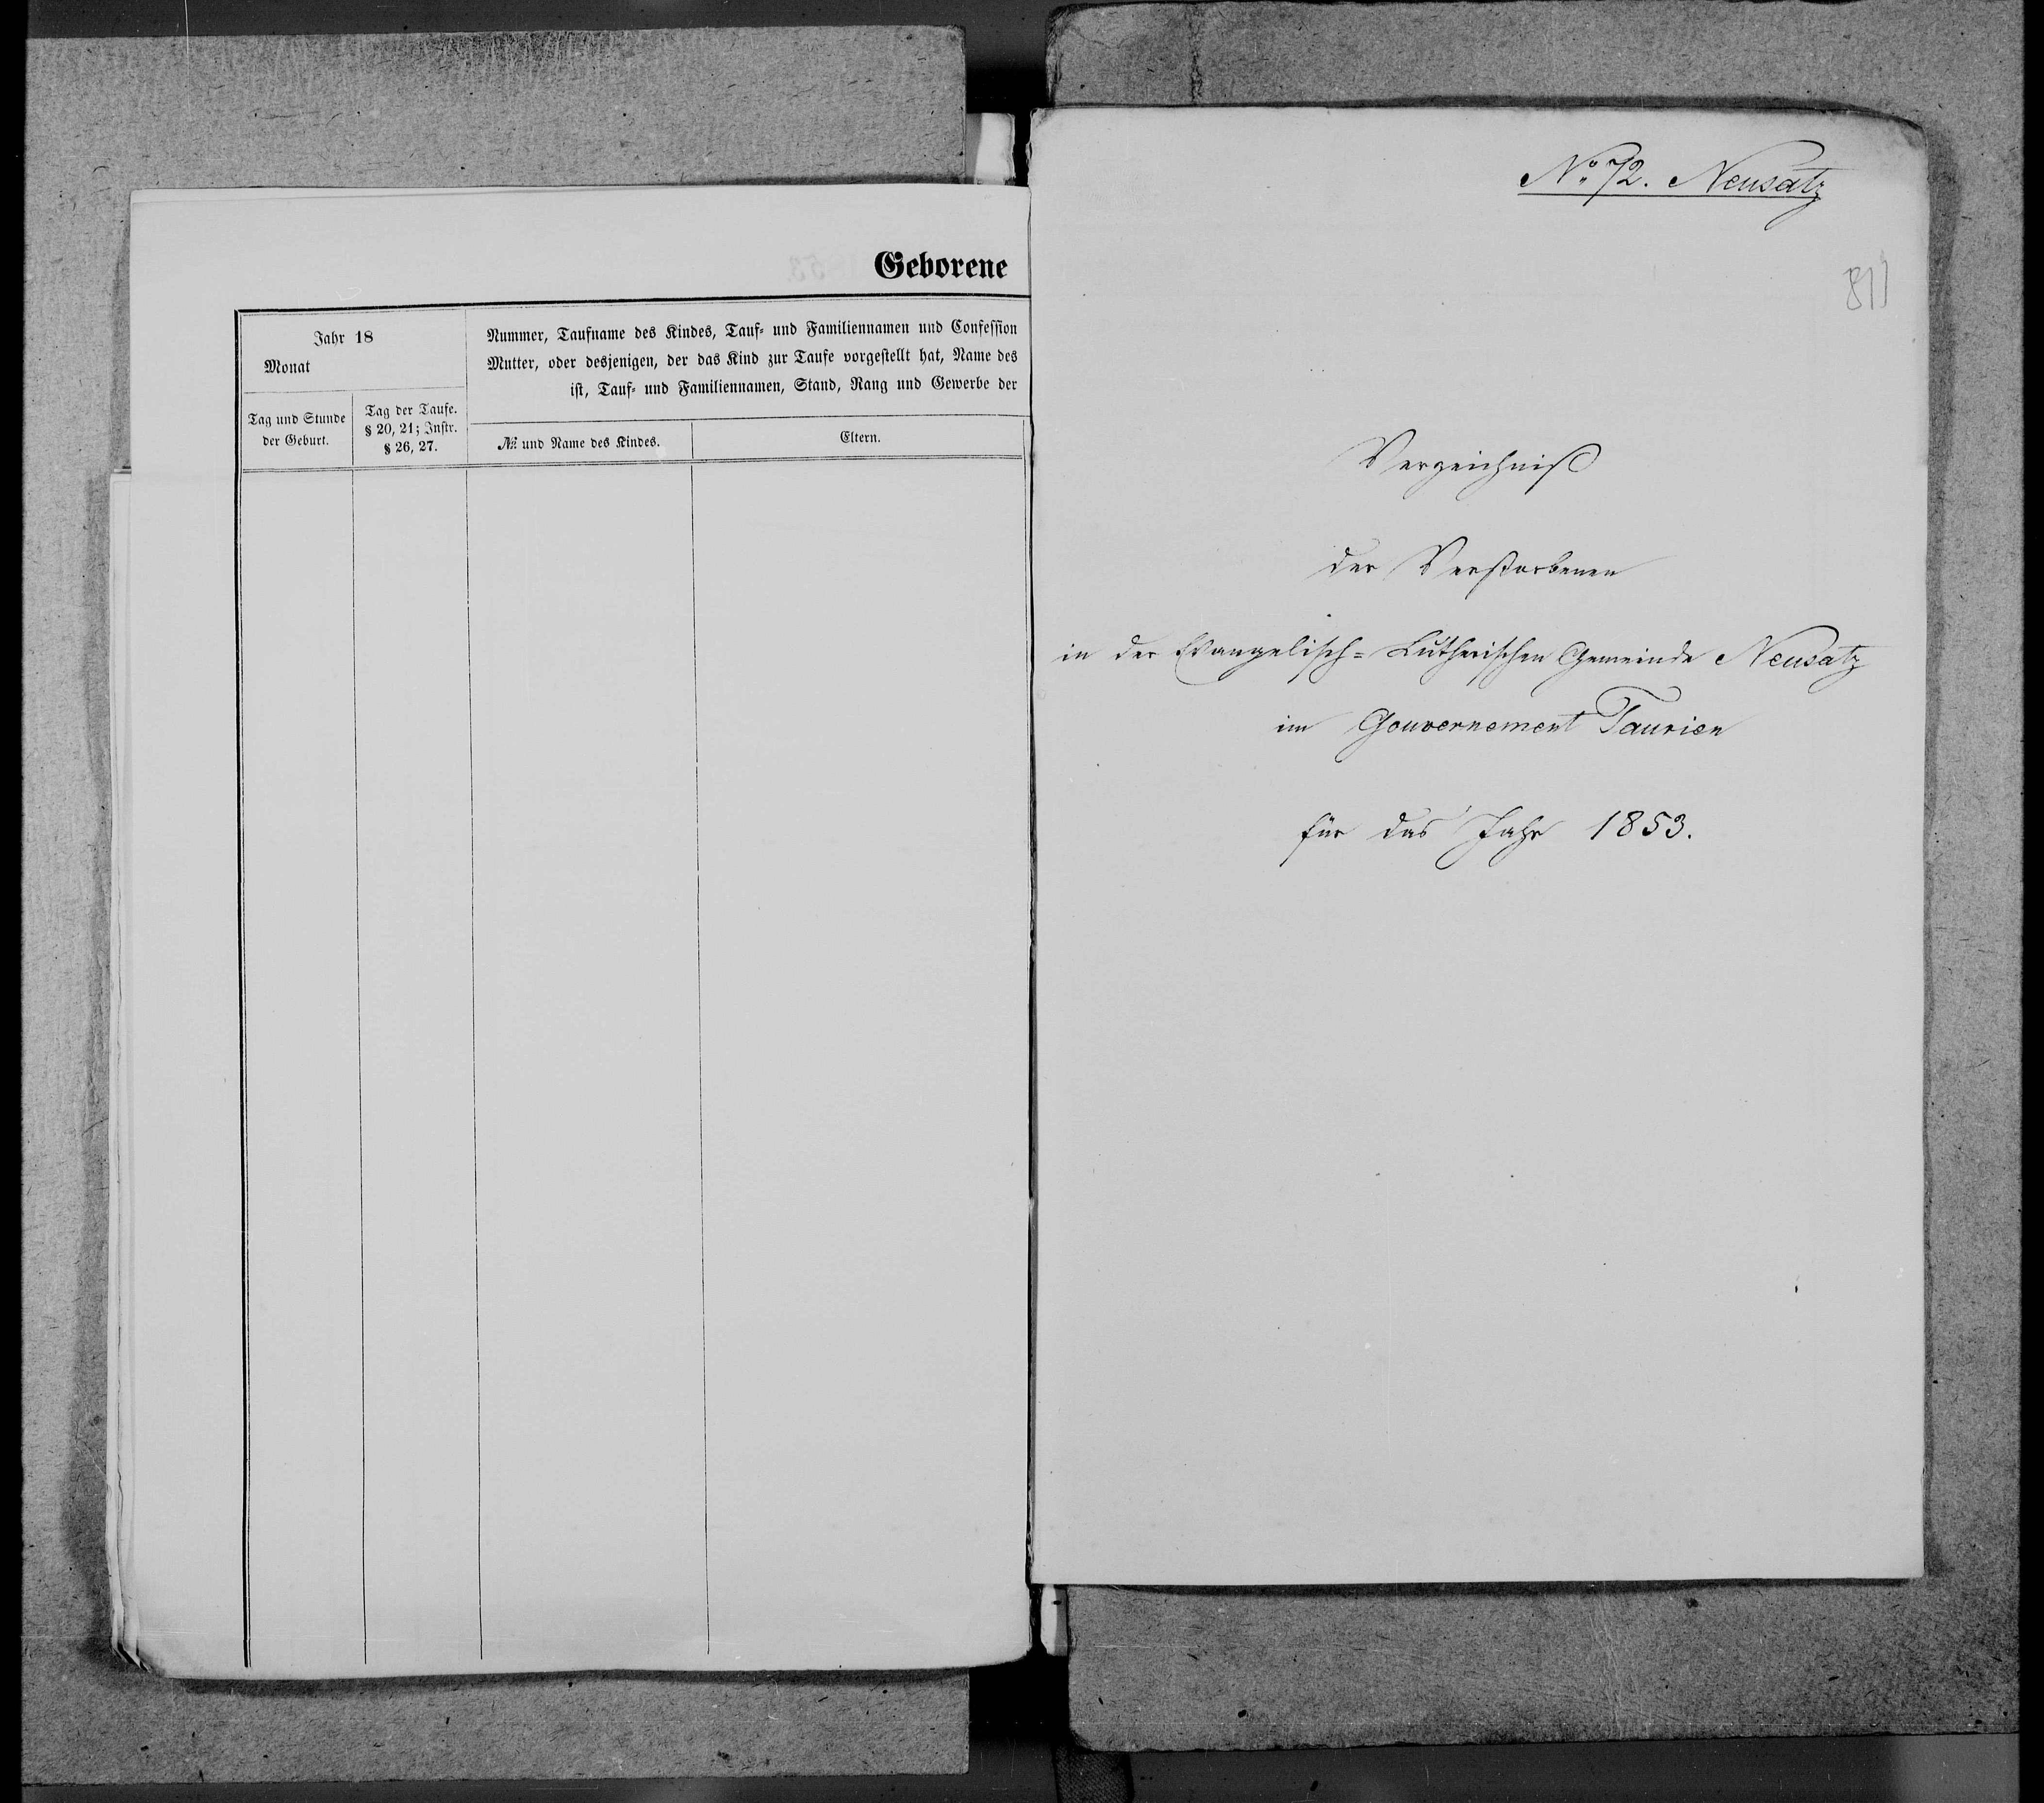 Geborene
Jahr 18
Monat
Nummer, Taufname des Kindes, Tauf- und Familiennamen und Confession
Mutter, oder desjenigen, der das Kind zur Taufe vorgestellt hat, Name des
ist, Tauf- und Familiennamen, Stand, Rang und Gewerbe der
Tag und Stunde
der Geburt.
Tag der Taufe.
§ 20, 21; Instr.
§ 26, 27.
№ und Name des Kindes.
Eltern.
No. 72. Neusatz
811
Verzeichniß
der Verstorbenen
in der Evangelisch-Lutherischen Gemeinde Neusatz
im Gouvernement Taurien
für das Jahr 1853.